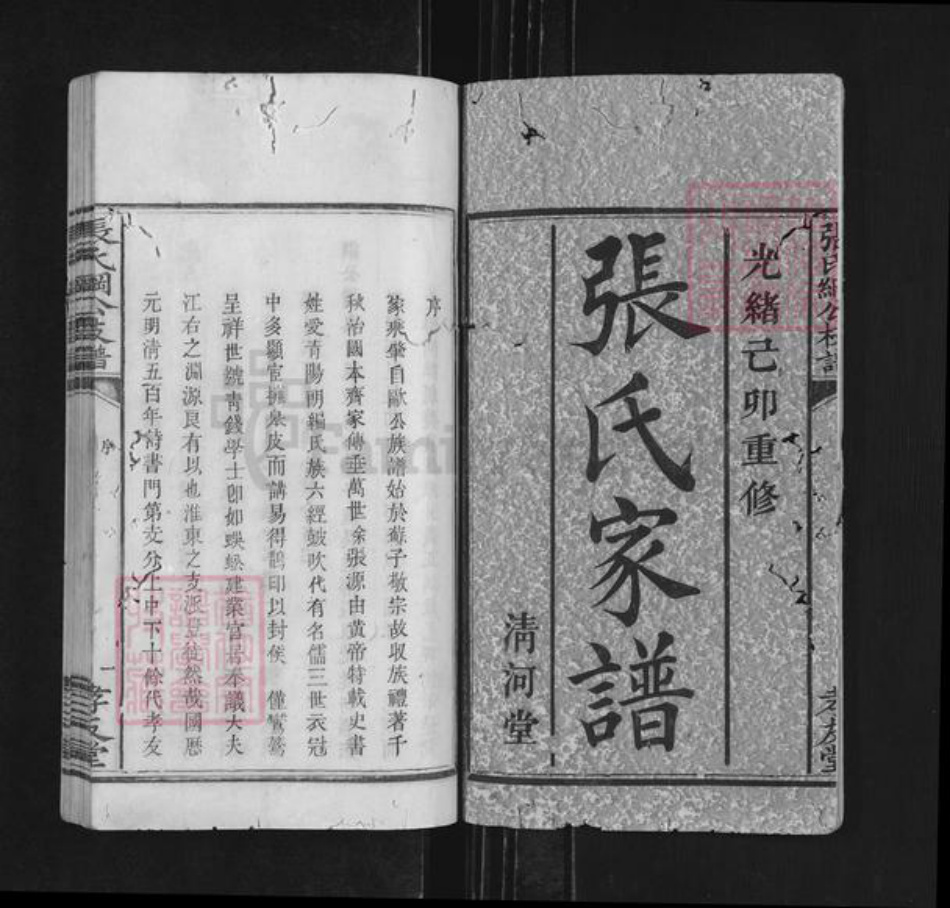 光緒己卯重修
張氏家譜
清河堂
張氏綱公支譜
孝友堂
序
篆乘肇自歐公族譜始於蘇子敬宗故收族禮著千
秋治國本齊家傳垂萬世余張源由黃帝特載史書
姓愛青陽朗編氏族六經鼓吹代有名儒三世衣冠
中多顯宦擁皋皮而講易得鵲印以封侯 僮鸞鶱
呈祥世號青錢學士即如蜈蚣建業官居奉議大夫
江右之淵源良有以也淮東之支派豈徒然哉國歷
元明清五百年詩書門第支分上中下十餘代孝友
張氏綱公支譜
序
一
孝友堂